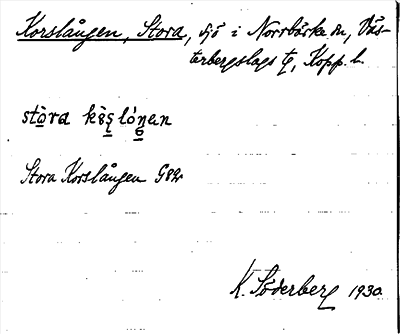 Korslången, Stora, sjö i Norrbärke sn, Väs-
terbergslags tg, Kopp. l.
stora kɵs̨lóŋen
Stora Korslången G82v
K. Söderberg 1930